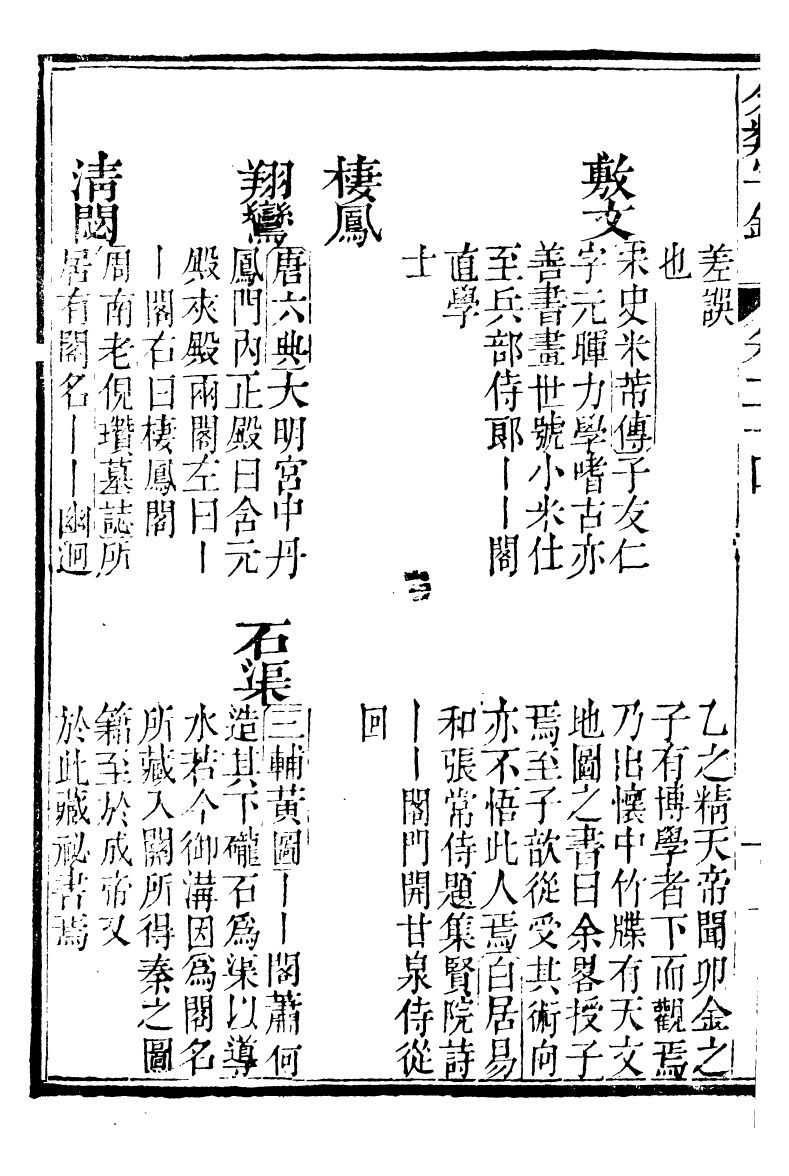 差誤
也
敷文
宋史米芾傳子友仁
字元暉力學嗜古亦
善書畫世號小米仕
至兵部侍郎丨丨閣
直學
士
棲鳳
翔鸞
唐六典大明宮中丹
鳳門內正殿曰含元
殿夾殿兩閣左曰丨
丨閣右曰棲鳳閣
清閟
周南老倪瓚墓誌所
居有閣名丨丨幽迥
乙之精天帝聞卯金之
子有博學者下而觀焉
乃出懷中竹牒有天文
地圖之書曰余畧授子
焉至子歆從受其術向
亦不悟此人焉白居易
和張常侍題集賢院詩
丨丨閣門開甘泉侍從
回
石渠
三輔黃圖丨丨閣蕭何
造其下礲石爲渠以導
水若今御溝因爲閣名
所藏入關所得秦之圖
籍至於成帝又
於此藏祕書焉